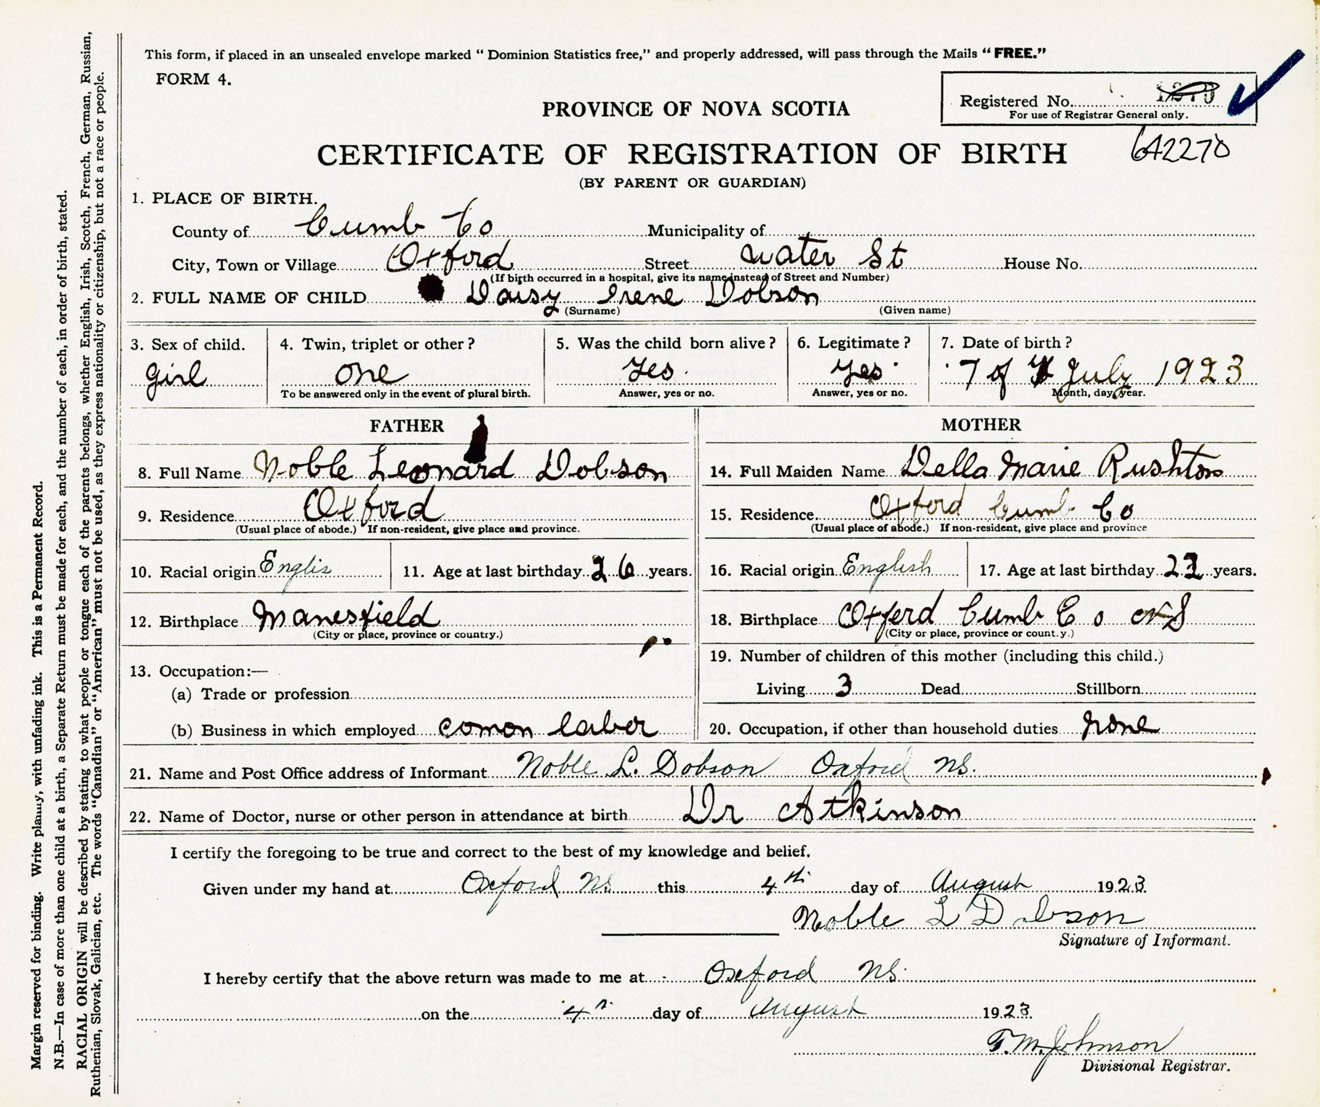 This form, if placed in an unsealed envelope marked “ Dominion Statistics free,” and properly addressed, will pass through the Mails “ FREE.”
FORM 4.
Registered No.
For use of Registrar General only.
642270
PROVINCE OF NOVA SCOTIA
CERTIFICATE OF REGISTRATION OF BIRTH
(BY PARENT OR GUARDIAN)
1. PLACE OF BIRTH.
County of Cumb Co Municipality of
City, Town or Village Oxford Street Water St House No.
(If birth occurred in a hospital, give its name instead of Street and Number)
2. FULL NAME OF CHILD Daisy Irene Dobson
(Surname) (Given name)
3. Sex of child. 4. Twin, triplet or other ? 5. Was the child born alive ? 6. Legitimate ? 7. Date of birth ?
girl one Yes. yes. 7 of July 1923
To be answered only in the event of plural birth. Answer, yes or no. Answer, yes or no. Month, day, year.
FATHER MOTHER
8. Full Name Noble Leonard Dobson 14. Full Maiden Name Della Marie Rushton
9. Residence Oxford 15. Residence Oxford Cumb Co
(Usual place of abode.) If non-resident, give place and province. (Usual place of abode.) If non-resident, give place and province
10. Racial origin Englis 11. Age at last birthday 26 years. 16. Racial origin English 17. Age at last birthday years.
12. Birthplace Manesfield 18. Birthplace Oxferd Cumb Co NS
(City or place, province or country.) (City or place, province or count.y.)
13. Occupation:— 19. Number of children of this mother (including this child.)
(a) Trade or profession Living 3 Dead Stillborn
(b) Business in which employed comon laber 20. Occupation, if other than household duties none
21. Name and Post Office address of Informant Noble L. Dobson Oxford NS.
22. Name of Doctor, nurse or other person in attendance at birth Dr Atkinson
I certify the foregoing to be true and correct to the best of my knowledge and belief.
Given under my hand at Oxford NS this 4th day of August 1923
Noble L Dobson
Signature of Informant.
I hereby certify that the above return was made to me at Oxford NS.
on the 4th day of August 1923
T. M. Johnson
Divisional Registrar.
Margin reserved for binding. Write plainly, with unfading ink. This is a Permanent Record.
N.B.—In case of more than one child at a birth, a Separate Return must be made for each, and the number of each, in order of birth, stated.
RACIAL ORIGIN will be described by stating to what people or tongue each of the parents belongs, whether English, Irish, Scotch, French, German, Russian,
Ruthenian, Slovak, Galician, etc. The words “Canadian” or “American” must not be used, as they express nationality or citizenship, but not a race or people.